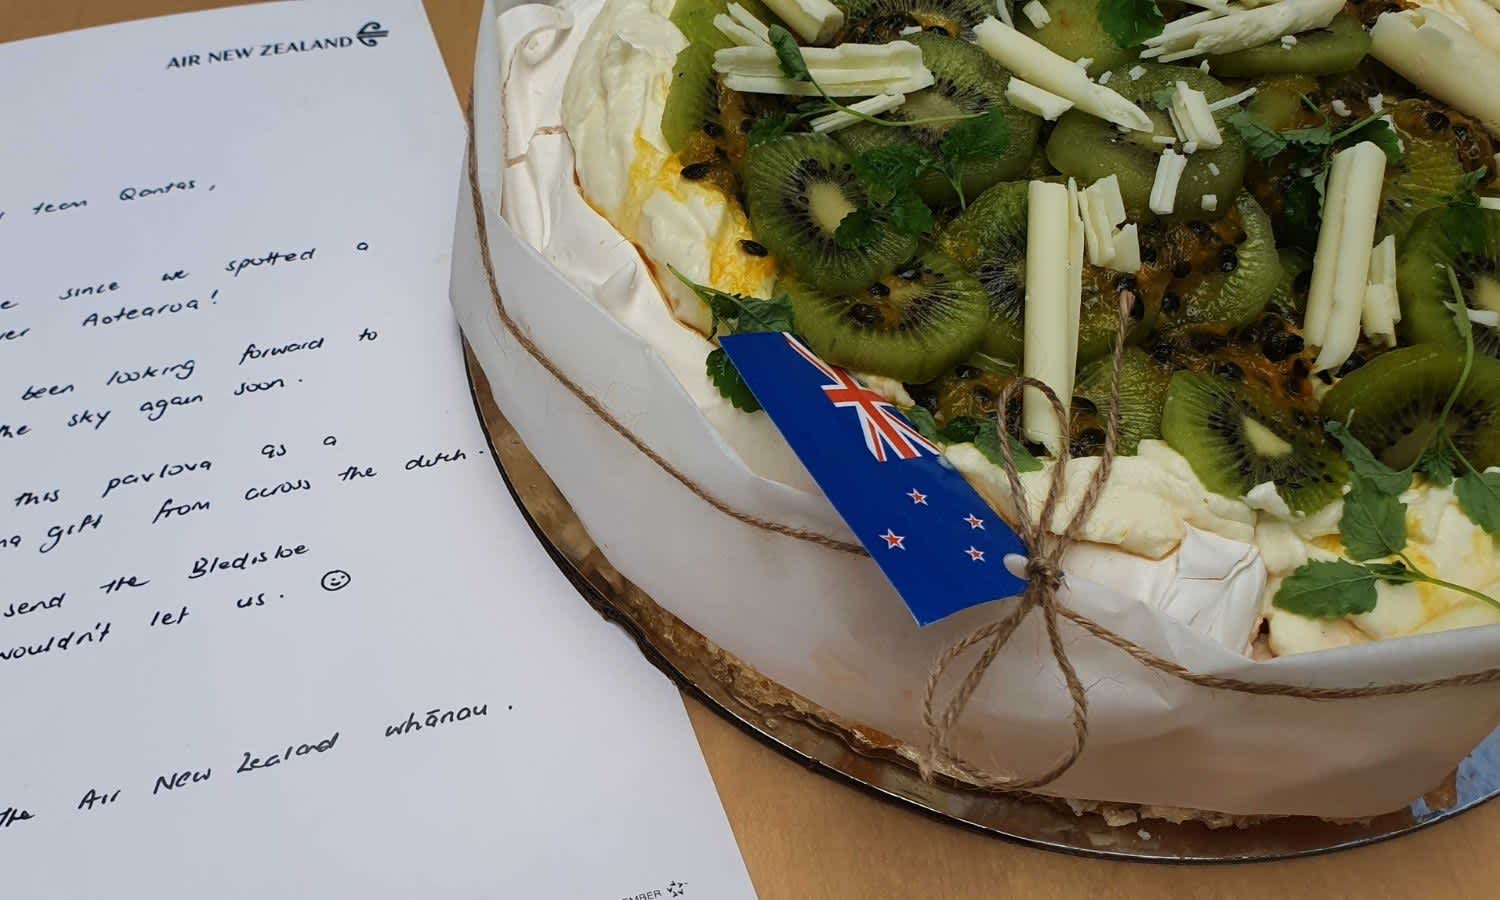 AIR NEW ZEALAND
team Qantas,
since we spotted a
Aotearoa!
been looking forward to
sky again soon.
this pavlova as a
gift from across the ditch.
send the Bledisloe
wouldn't let us. ☺
the Air New Zealand whānau.